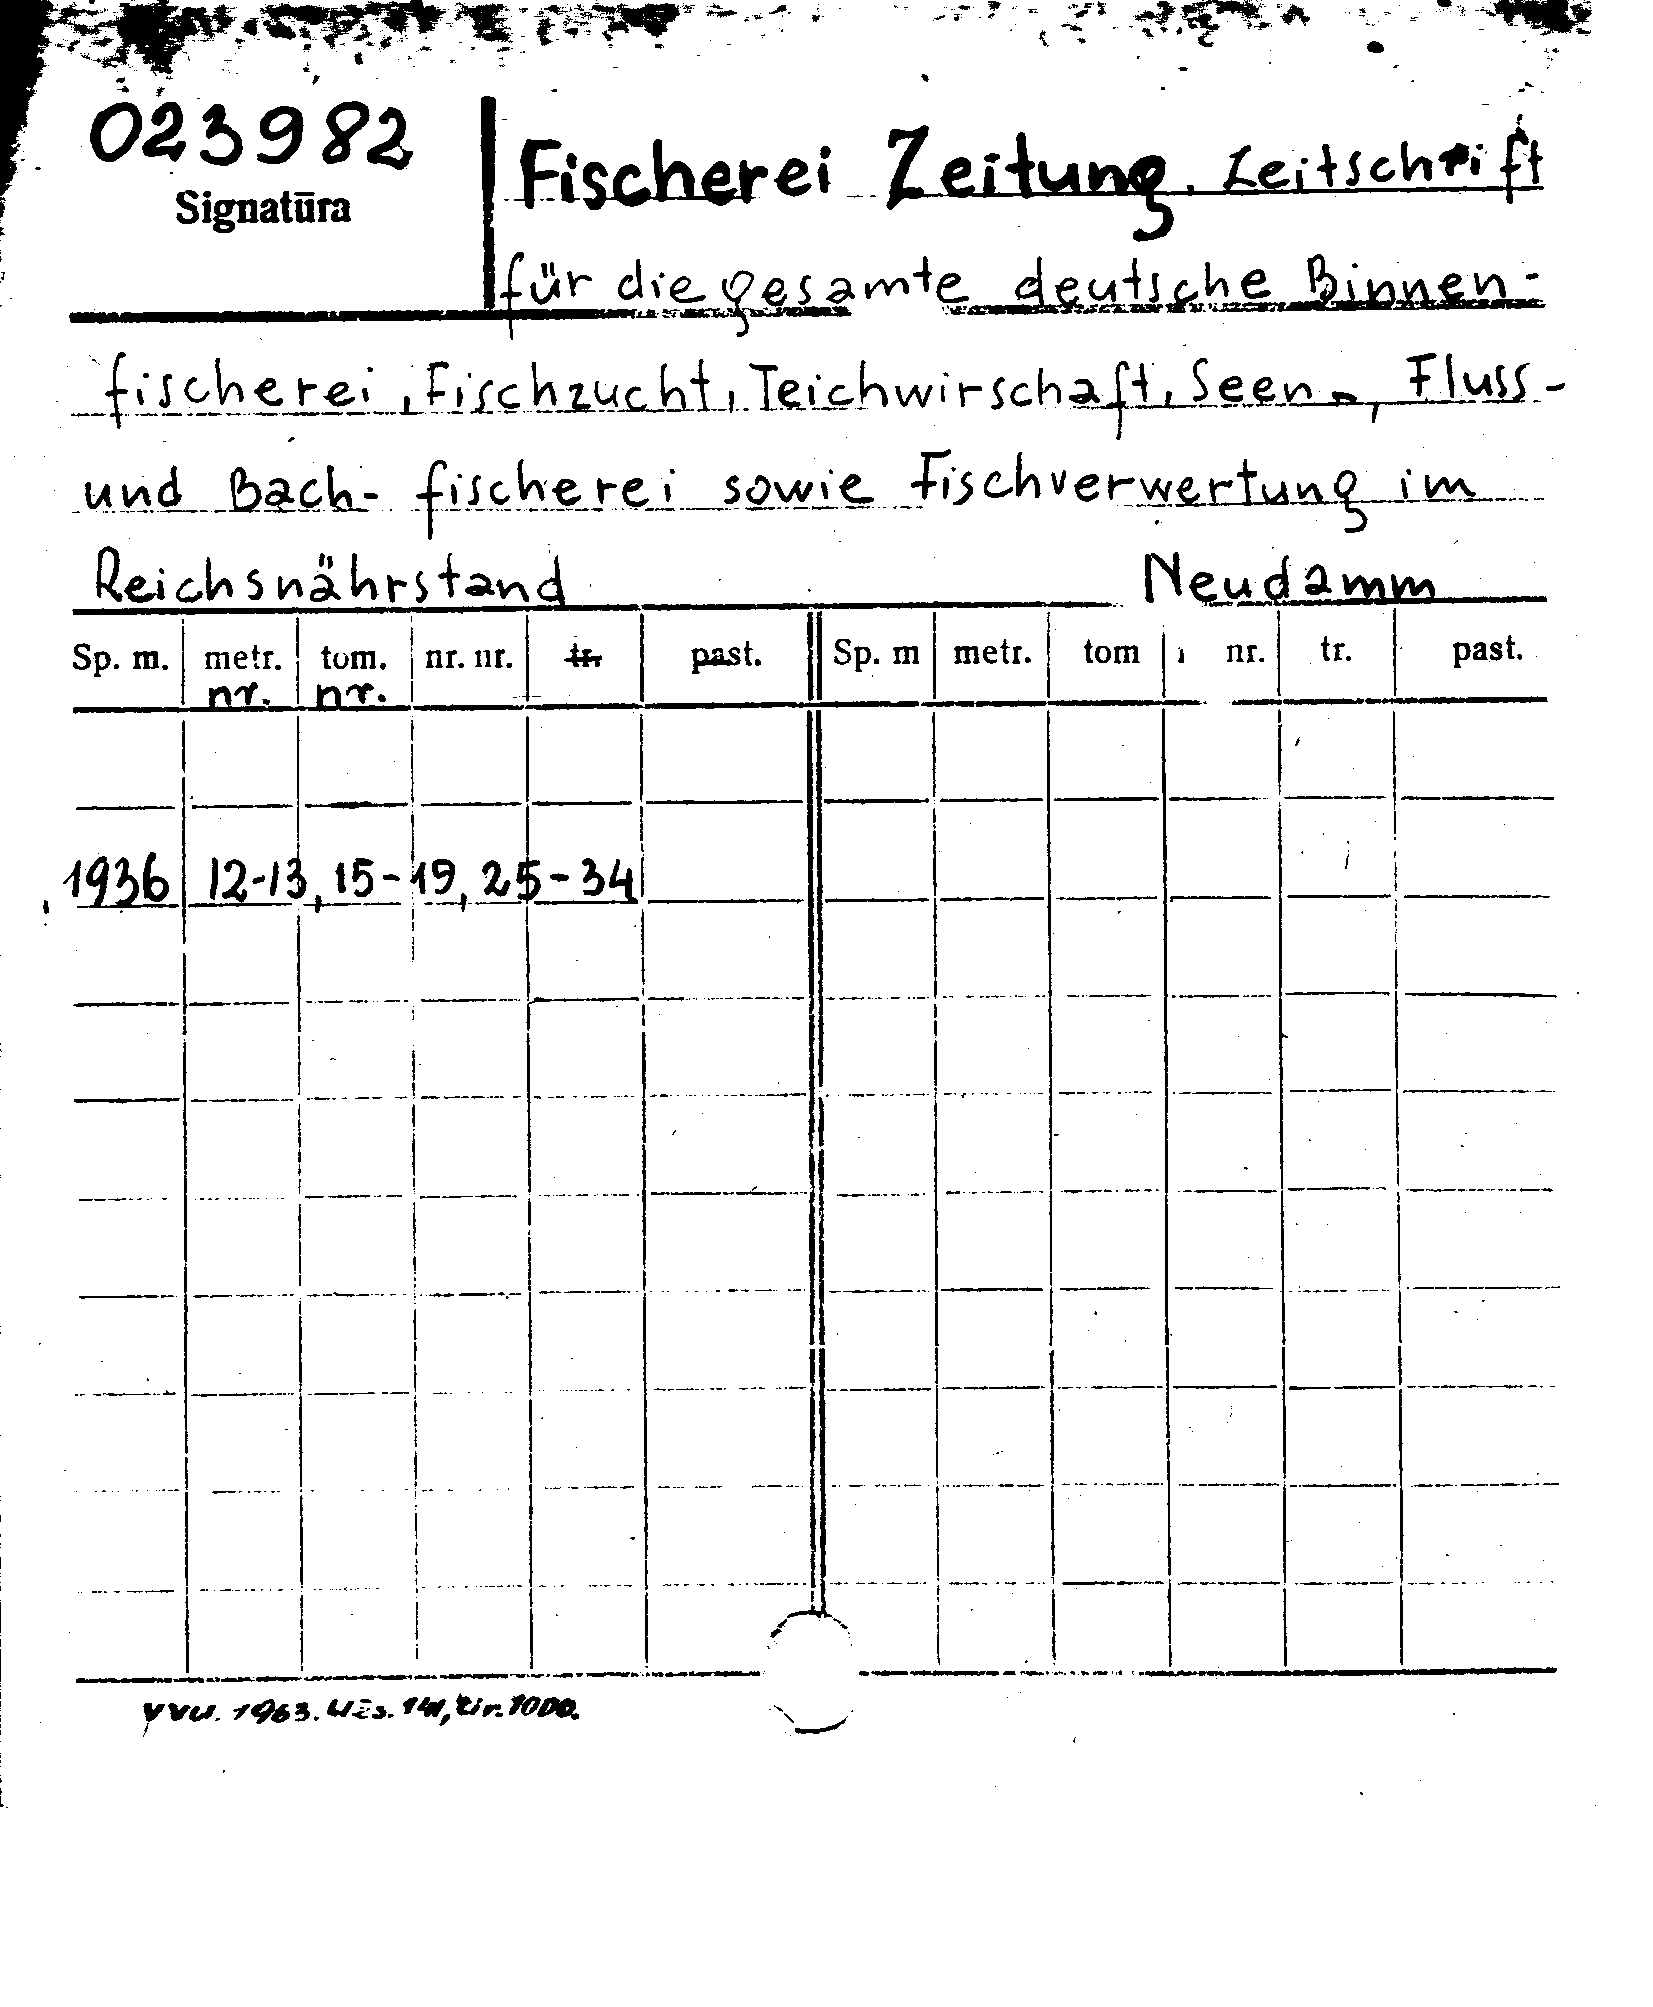 023982
Signatūra
Fischerei Zeitung. Zeitschrift
für die gesamte deutsche Binnen-
fischerei, Fischzucht, Teichwirschaft, Seen-, Fluss-
und Bach- fischerei sowie Fischverwertung im
Reichsnährstand Neudamm
Sp. m. metr. tom. nr. nr. tr. past. Sp. m metr. tom nr. tr. past.
nr. nr.
1936 12-13, 15-19, 25-34
VVU. 1963. Užs. 141, tir. 1000.